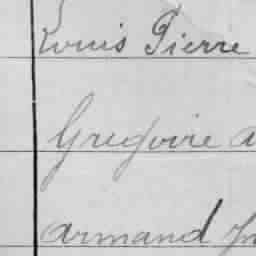 Louis Pierre
Gregoire a
Armand